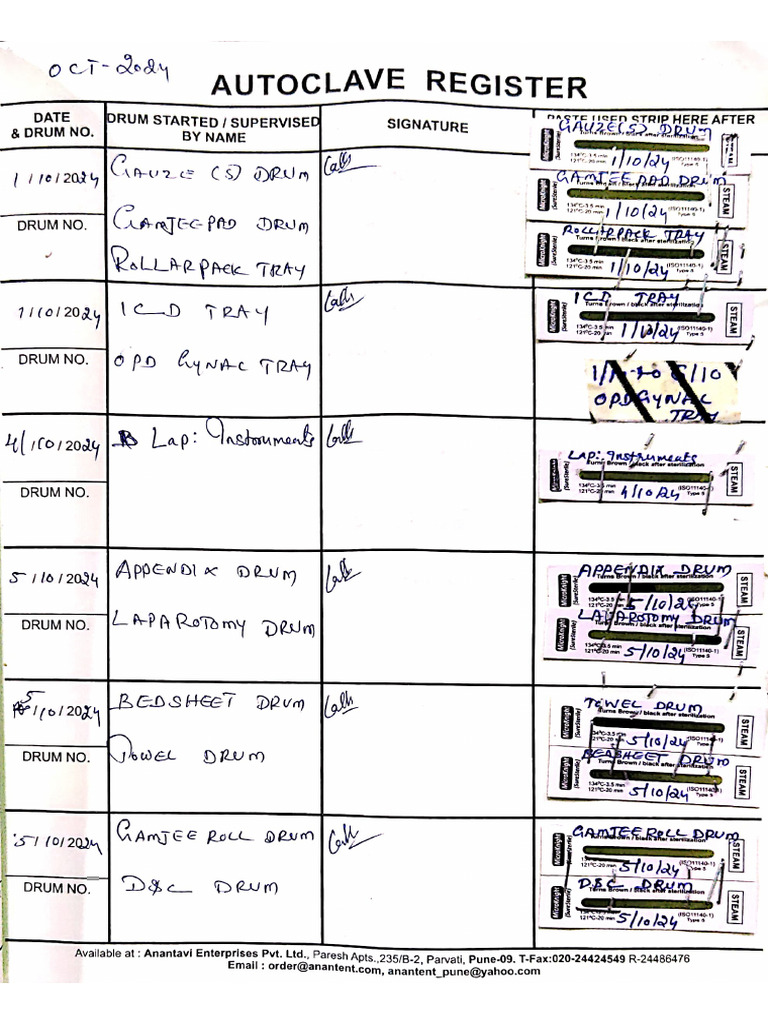 OCT-2024
AUTOCLAVE REGISTER
DATE & DRUM NO.
DRUM STARTED / SUPERVISED BY NAME
SIGNATURE
PASTE USED STRIP HERE AFTER
1/10/2024
GAUZE (S) DRUM
GAMJEE PAD DRUM
ROLLARPACK TRAY
DRUM NO.
GAUZE(S) DRUM
MicroKnight
134ºC-3.5 min
121ºC-20 min
1/10/24
(ISO11140-1)
GAMJEE PAD DRUM
MicroKnight
(SureSterile)
134ºC-3.5 min
121ºC-20 min
1/10/24
(ISO11140-1)
Type 5
STEAM
ROLLARPACK TRAY
Turns Brown / black after sterilization
MicroKnight
(SureSterile)
134ºC-3.5 min
121ºC-20 min
1/10/24
(ISO11140-1)
Type 5
STEAM
1/10/2024
ICD TRAY
OPD GYNAC TRAY
DRUM NO.
ICD TRAY
Turns Brown / black after sterilization
MicroKnight
(SureSterile)
134ºC-3.5 min
121ºC-20 min
1/10/24
(ISO11140-1)
Type 5
STEAM
OPD GYNAC
TRAY
4/10/2024
Lap: Instruments
DRUM NO.
Lap: Instruments
Turns Brown / black after sterilization
MicroKnight
(SureSterile)
134ºC-3.5 min
121ºC-20 min
4/10/24
(ISO11140-1)
Type 5
STEAM
5/10/2024
APPENDIX DRUM
LAPAROTOMY DRUM
DRUM NO.
APPENDIX DRUM
Turns Brown / black after sterilization
MicroKnight
(SureSterile)
134ºC-3.5 min
121ºC-20 min
5/10/24
(ISO11140-1)
Type 5
STEAM
LAPAROTOMY DRUM
MicroKnight
(SureSterile)
134ºC-3.5 min
121ºC-20 min
5/10/24
(ISO11140-1)
Type 5
STEAM
5/10/2024
BEDSHEET DRUM
TOWEL DRUM
DRUM NO.
TOWEL DRUM
Turns Brown / black after sterilization
MicroKnight
(SureSterile)
134ºC-3.5 min
121ºC-20 min
5/10/24
(ISO11140-1)
Type 5
STEAM
BEDSHEET DRUM
Turns Brown / black after sterilization
MicroKnight
(SureSterile)
134ºC-3.5 min
121ºC-20 min
5/10/24
(ISO11140-1)
Type 5
STEAM
5/10/2024
GAMJEE ROLL DRUM
D&C DRUM
DRUM NO.
GAMJEE ROLL DRUM
Turns Brown / black after sterilization
MicroKnight
(SureSterile)
134ºC-3.5 min
121ºC-20 min
5/10/24
(ISO11140-1)
Type 5
STEAM
D&C DRUM
Turns Brown / black after sterilization
MicroKnight
(SureSterile)
121ºC-20 min
5/10/24
(ISO11140-1)
Type 5
STEAM
Available at : Anantavi Enterprises Pvt. Ltd., Paresh Apts.,235/B-2, Parvati, Pune-09. T-Fax:020-24424549 R-24486476
Email : order@anantent.com, anantent_pune@yahoo.com